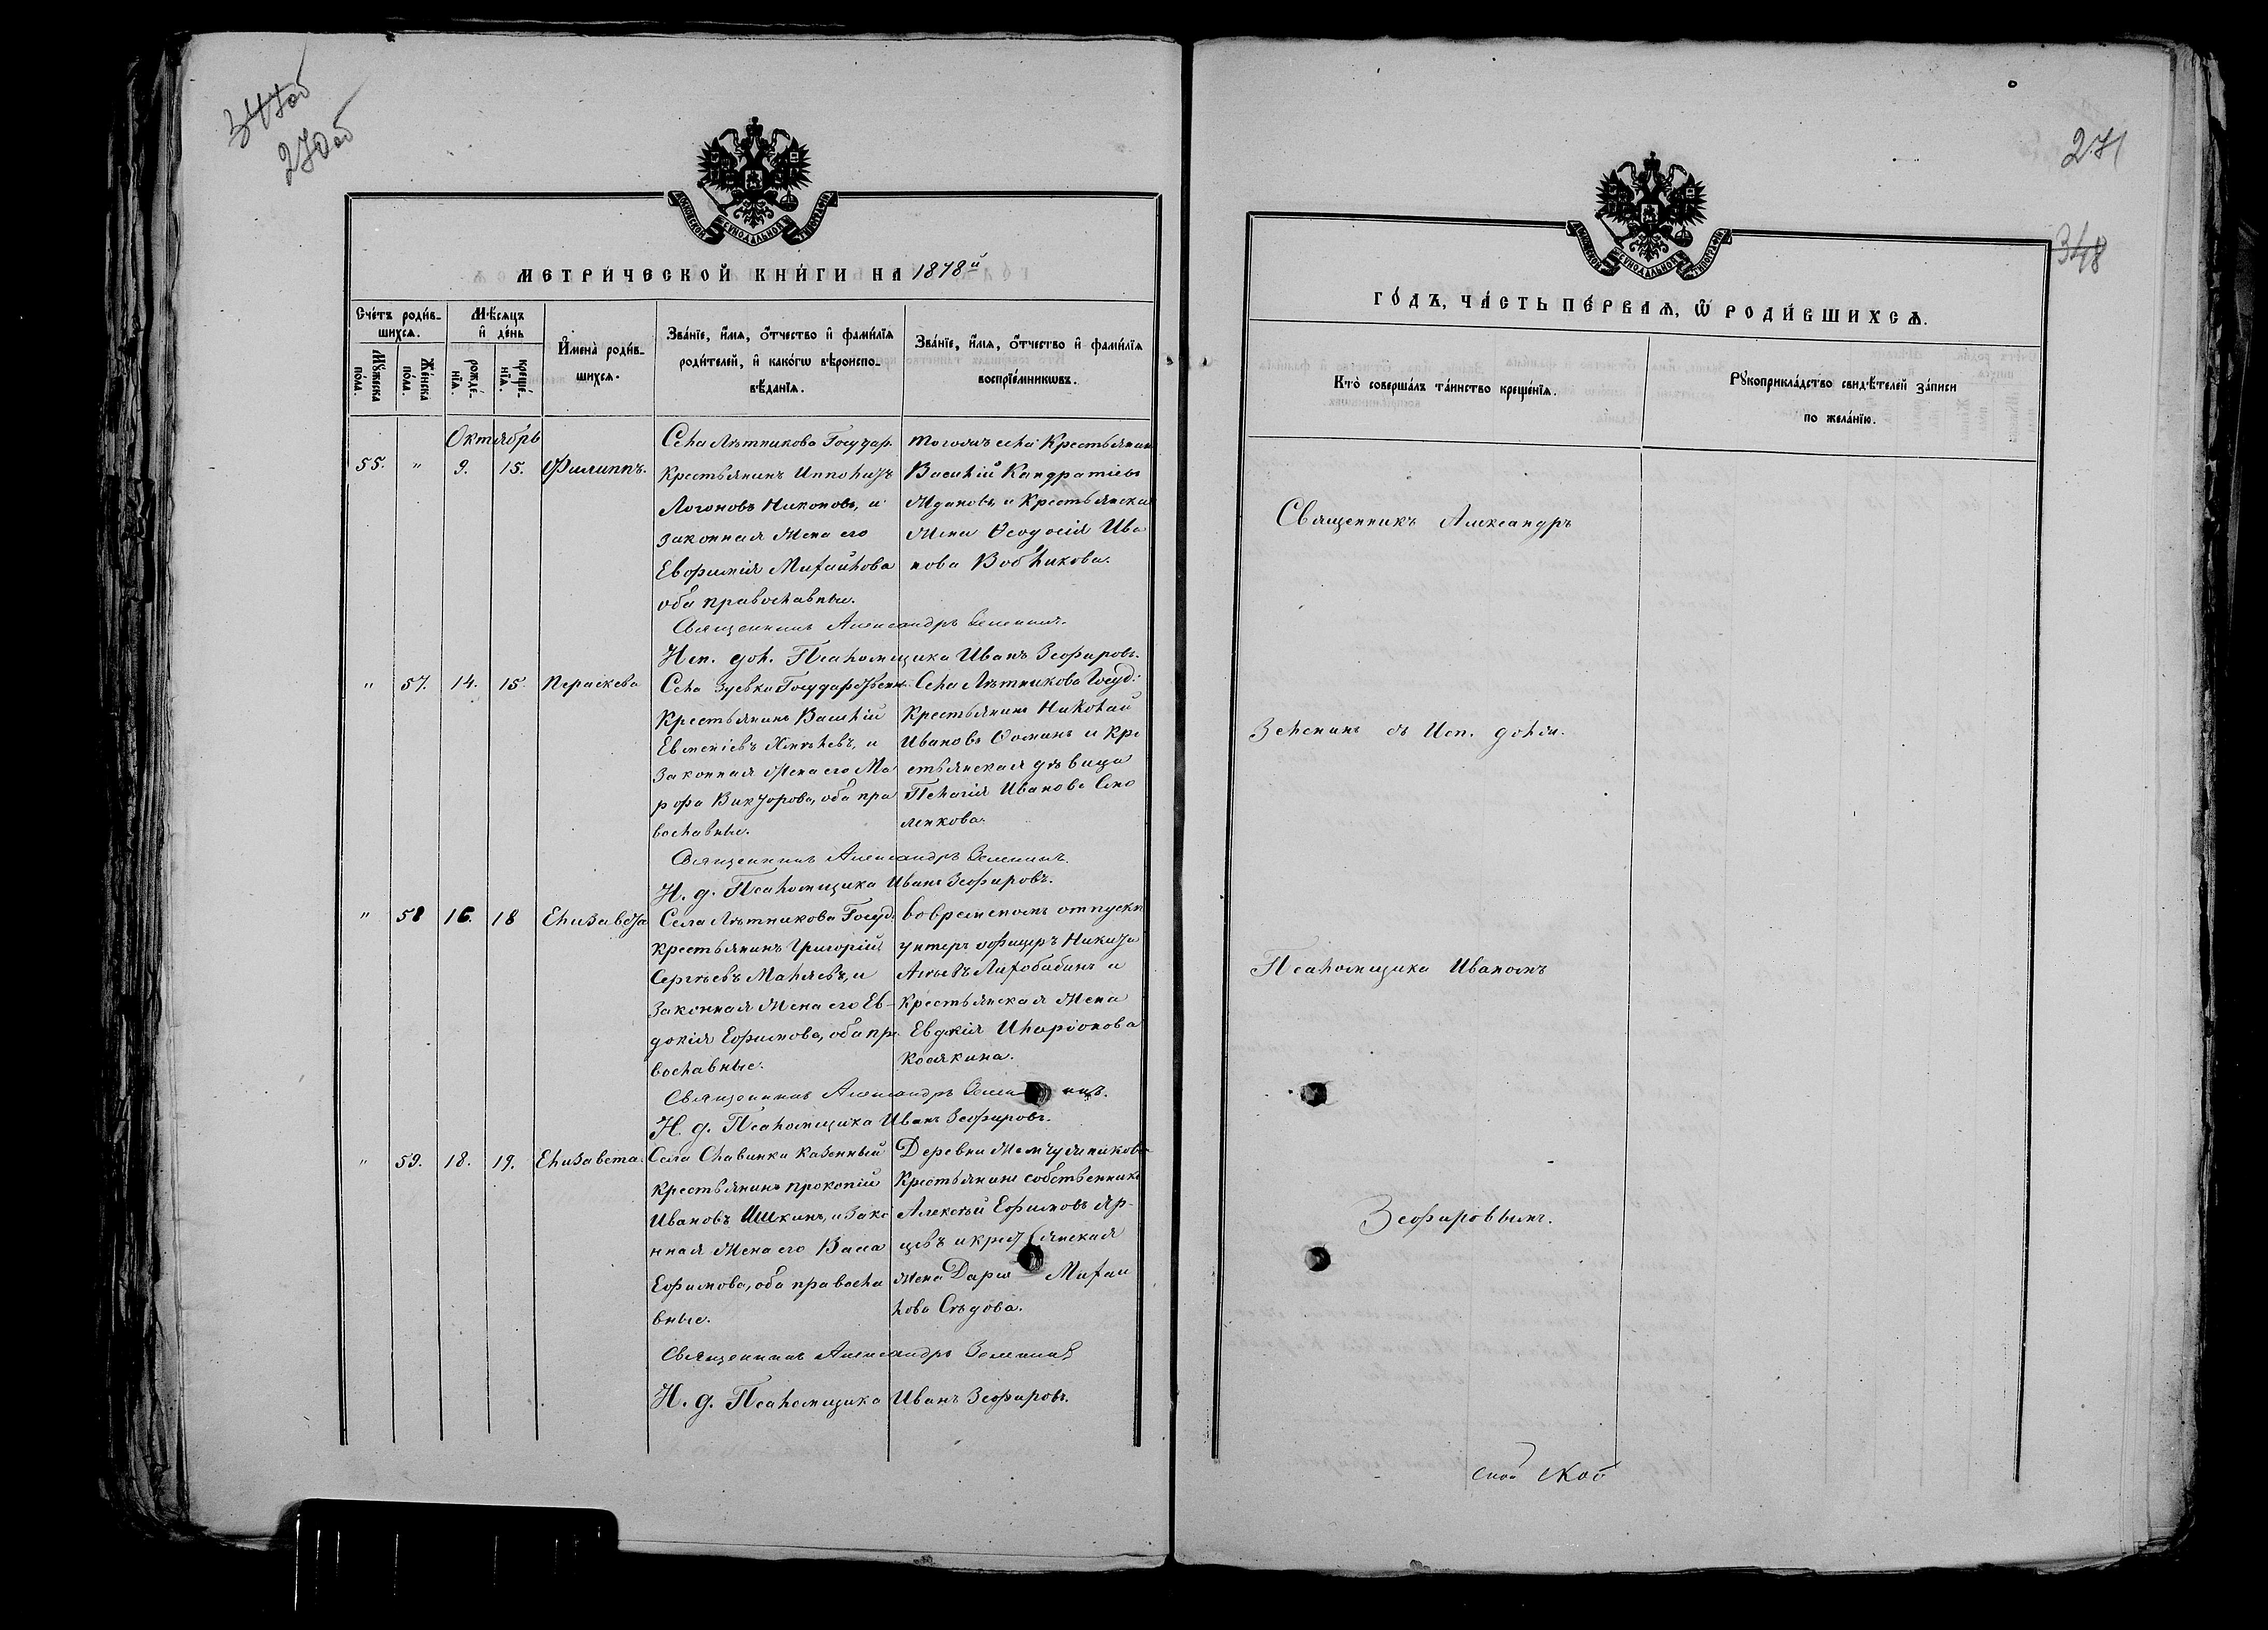 347об
270об
МОСКОВСКОЙ СѴНОДАЛЬНОЙ ТИПОГРАФІИ
МЕТРИ́ЧЕСКОЙ КНИ́ГИ НА 1878й
Сче́тъ роди́в-
шихсѧ.
Мꙋ́жеска по́ла.
Же́нска по́ла.
Мѣ́сѧцъ и҆ де́нь
рожде́-нїѧ.
креще́-нїѧ.
И҆мена̀ роди́в-
шихсѧ.
Зва́нїе, и҆́мѧ, ѻ҆́тчество и҆ фами́лїѧ
роди́телей, и҆ како́гѡ вѣроиспо-
вѣ́данїѧ.
Зва́нїе, и҆́мѧ, ѻ҆́тчество и҆ фами́лїѧ
воспрїе́мникѡвъ.
Октябрь
55. " 9. 15. Филиппъ.
Села Лѣтникова Государ.
крестьянинъИпполитъ
Логоновъ Никоновъ, и
законная жена его
Евфимія Михайлова
оба православные.
тогожъ села Крестьянин
Василій Кандратіевъ
Ждановъ, и Крестьянска
жена Ѳеодосія Ива
нова Вобликова.
Священникъ Александръ Зеленинъ.
Исп. дол. Псаломщика Иванъ Зефировъ.
" 57. 14. 15. Параскева
Села Зуевки Государственн.
Крестьянинъ Василій
Евменіевъ Хмѣлевъ, и
Законная жена его Ма
рфа Викторова, оба пра
вославные.
Села Лѣтникова Госуд.
Крестьянинъ Николай
Ивановъ Ѳоминъ и Кре
стьянская дѣвица
Пелагія Иванова Смо
ленкова.
Священникъ Александръ Зеленинъ.
И. д. Псаломщика Иванъ Зефировъ.
" 58 16. 18 Елизавета
Села Лѣтникова Госуд.
крестьянинъ Григорій
Сергѣевъ Маляевъ, и
Законная жена его Ев-
докія Ефимова, оба пра
вославные.
вовременомъ отпуски
унтеръ офицеръ Никита
Лихобабинъ и
Крестьянская жена
Евдокія Иларіонова
Косякина.
Священникъ Александръ Зеленинъ.
И. д. Псаломщика Иванъ Зефировъ.
" 59. 18. 19. Елизавета.
Села Славинки казенный
крестьянинъ Прокопій
Ивановъ Ишкинъ, и Зако
нная жена его Васса
Ефимова, оба правосла
вные.
Деревни Жемчужникова
Крестьянинъ собственникъ
Алексѣй Ефимовъ Яр-
цевъ и крестьянская
жена Дарья Михаи
лова Сѣдова.
Священникъ Александръ Зеленинъ
И. д. Псаломщика Иванъ Зефировъ.
271
348
МОСКОВСКОЙ СѴНОДАЛЬНОЙ ТИПОГРАФІИ
ГО́ДЪ, ЧА́СТЬ ПЕ́РВАѦ, Ѡ҆ РОДИ́ВШИХСѦ.
Кто̀ соверша́лъ та́инство креще́нїѧ.
Рꙋкоприкла́дство свидѣ́телей за́писи
по жела́нїю.
Священникъ Александръ
Зеленинъ съ Исп. долж.
Псаломщика Иваномъ
Зефировымъ.